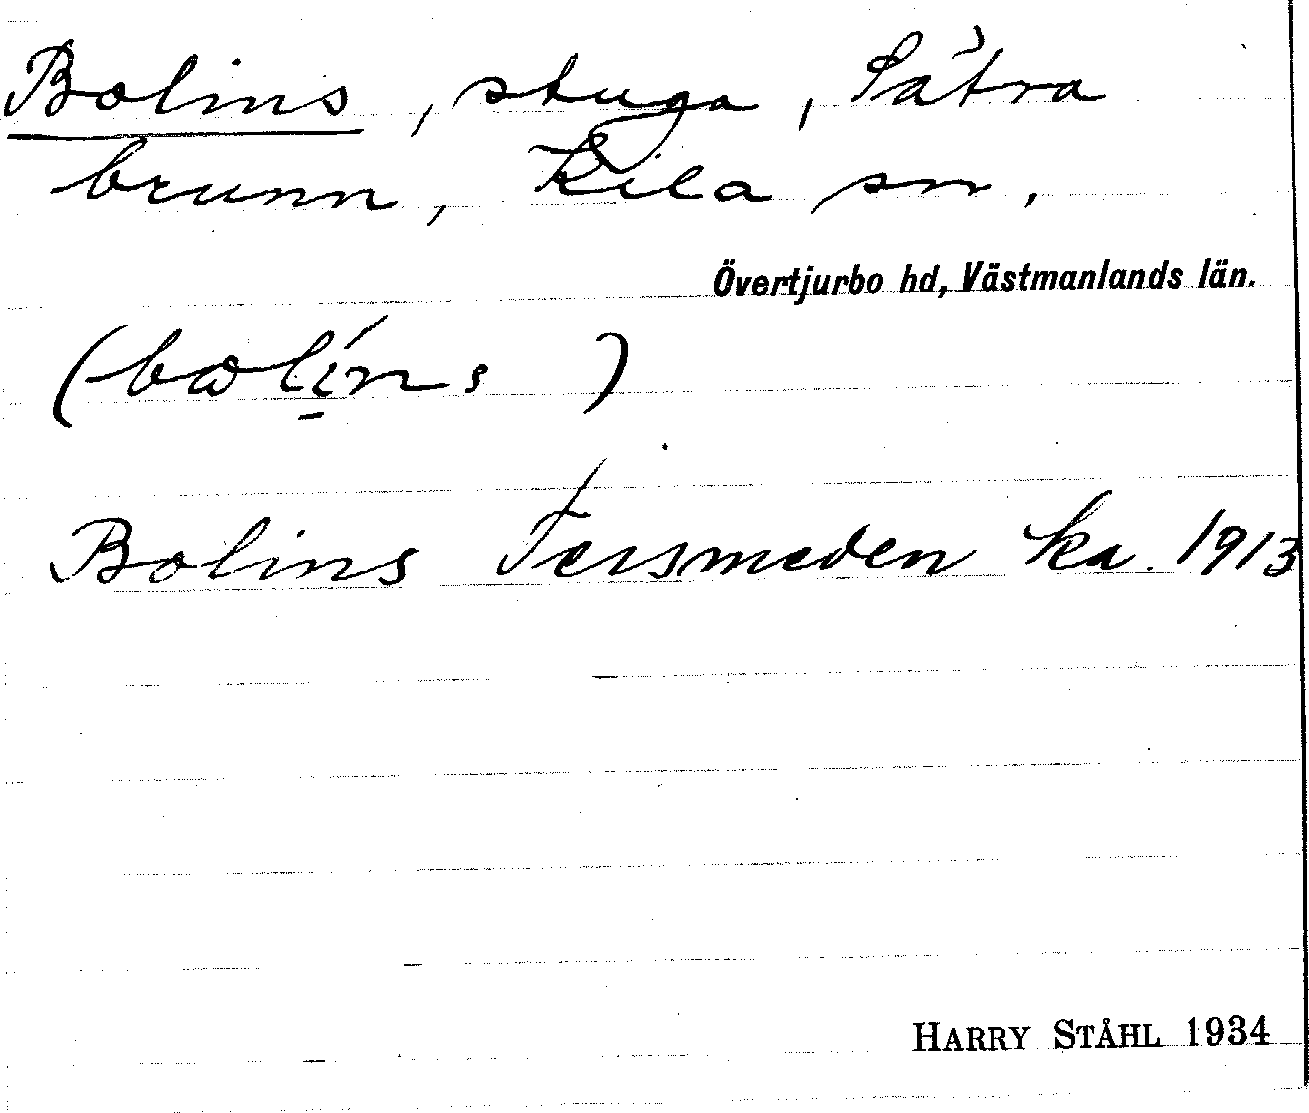 Bolins, stuga, Sätra
brunn, Kila sn.
Övertjurbo hd, Västmanlands län.
(bωlí̱ns)
Bolins Tersmeden ka. 1913
HARRY STÅHL 1934